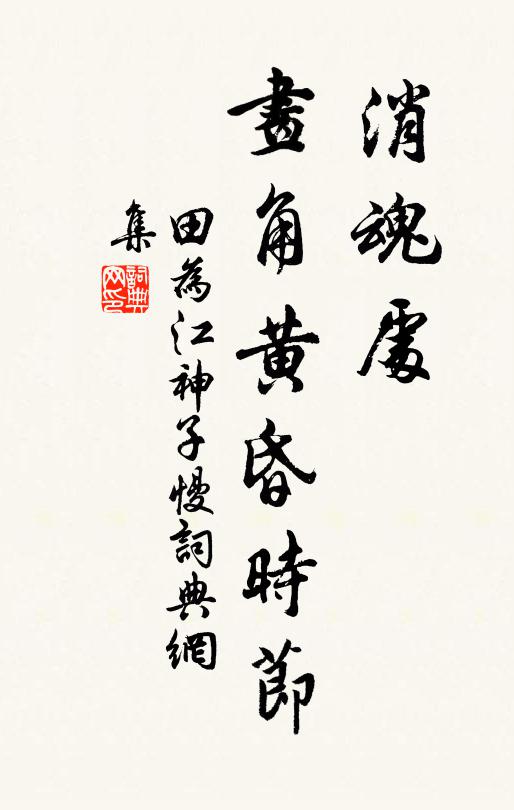 消魂處
畫角黄昏時節
田為江神子慢詞典網
集
詞典
网印